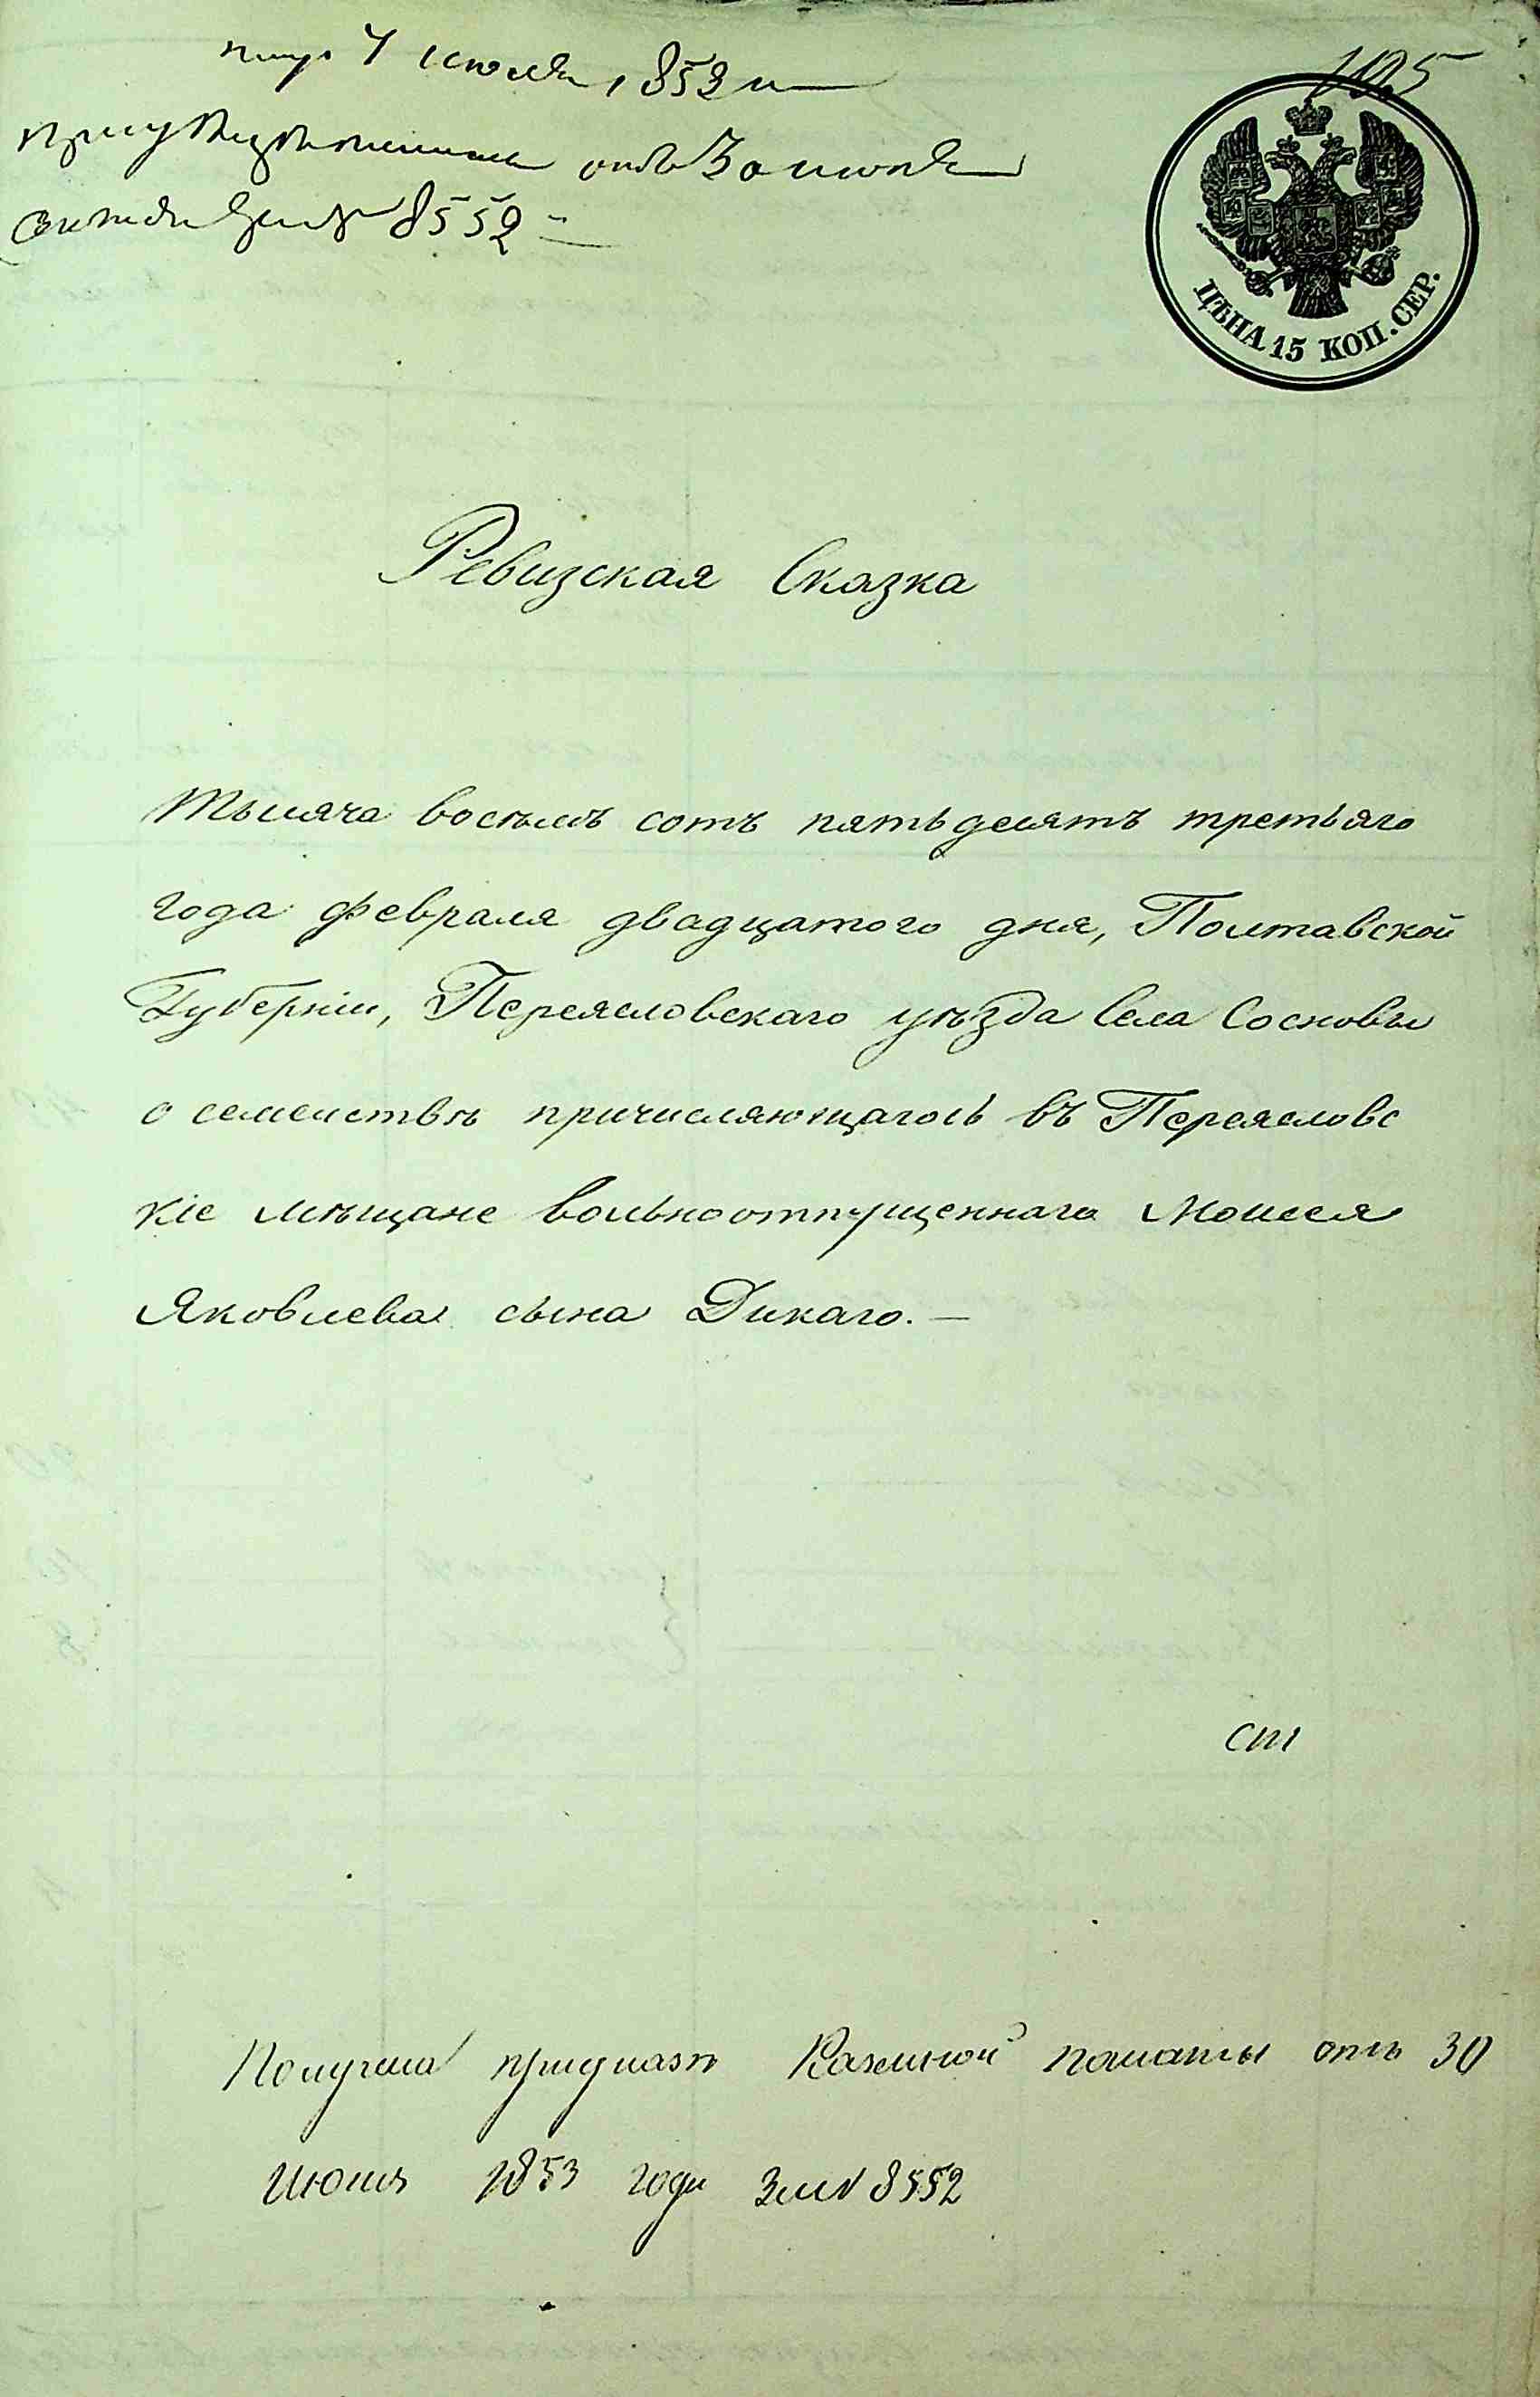 7 июля 1853
195
при от 30 июня
за № 8552
ЦѢНА 15 КОП. СЕР.
Ревизская Сказка
Тысяча восемь сотъ пятьдесятъ третьяго
года февраля двадцатого дня, Полтавской
Губерніи, Переясловскаго уѣзда Села Сосновы
о семействѣ причисляющагось въ Переясловс
кіе мѣщане вольноотпущеннаго Моисея
Яковлева сына Дикаго. —
Получена при указѣ Казенной палаты отъ 30
июня 1853 года за № 8552